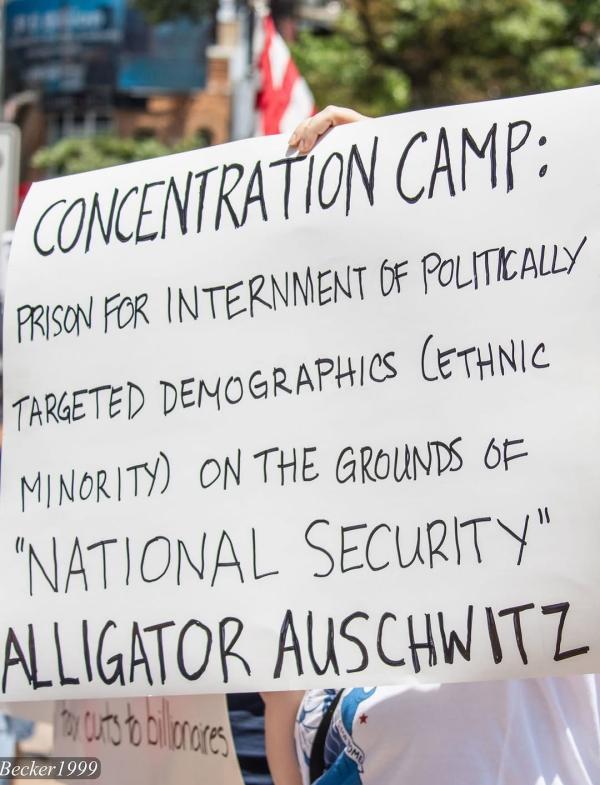 CONCENTRATION CAMP:
PRISON FOR INTERNMENT OF POLITICALLY
TARGETED DEMOGRAPHICS (ETHNIC
MINORITY) ON THE GROUNDS OF
"NATIONAL SECURITY"
ALLIGATOR AUSCHWITZ
tax cuts to billionaires
Becker1999